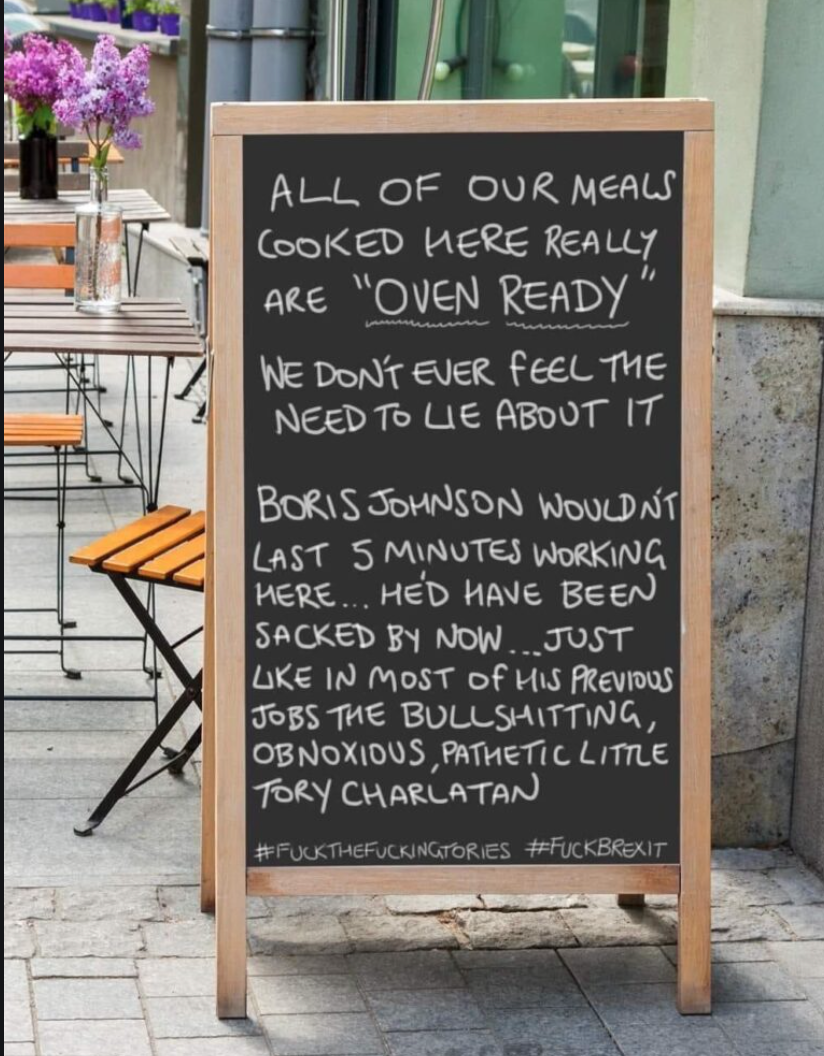 ALL OF OUR MEALS
COOKED HERE REALLY
ARE "OVEN READY"
WE DON'T EVER FEEL THE
NEED TO LIE ABOUT IT
BORIS JOHNSON WOULDN'T
LAST 5 MINUTES WORKING
HERE... HE'D HAVE BEEN
SACKED BY NOW...JUST
LIKE IN MOST OF HIS PREVIOUS
JOBS THE BULLSHITTING,
OBNOXIOUS, PATHETIC LITTLE
TORY CHARLATAN
#FUCKTHEFUCKINGTORIES #FUCKBREXIT